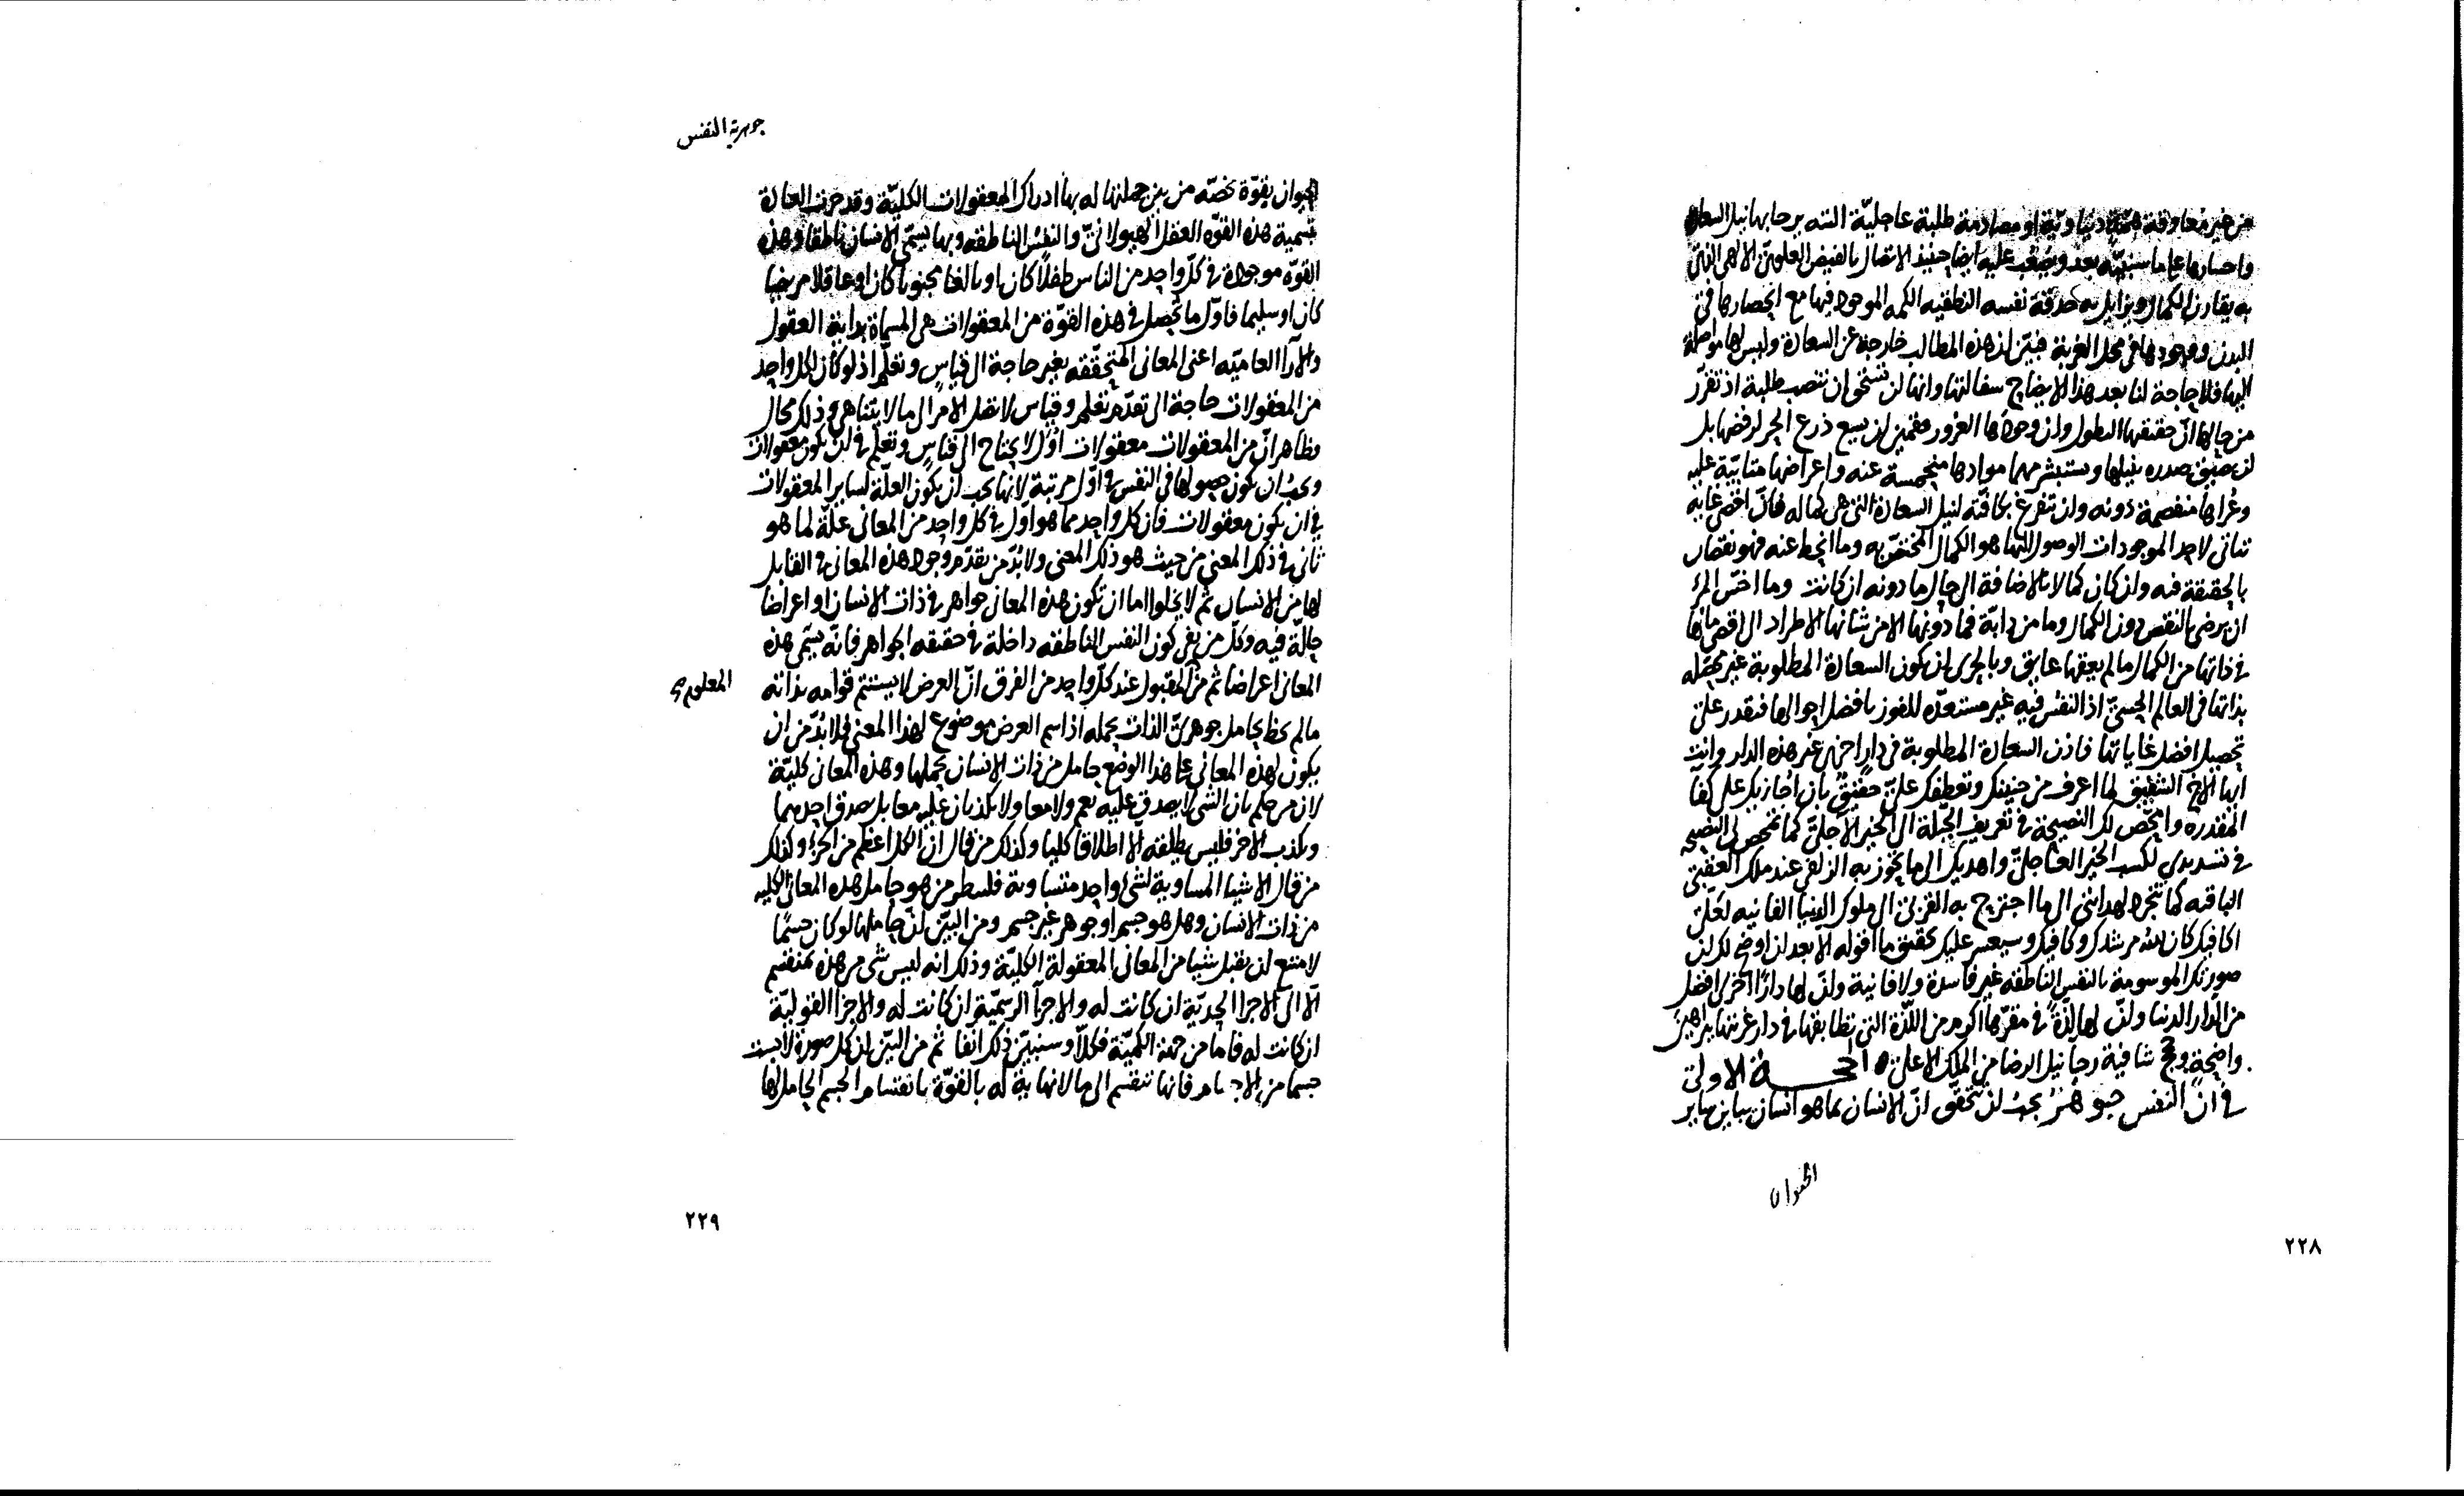 من غير معاوقة همة دنياوية او مصادمة طلبة عاجلية البتة يرجا بها نيل السعادة
واحسارها على ما سنبينه بعد ويصعب عليه ايضا حينئذ الاتصال بالفيض العلوى الالهى التى
به يقارن الكمال ويزايل به حدقة نفسه النطقية الكمه الموجود فيها مع انحصارها فى
البدن ووجودها فى محل الغربة فبيّن ان هذه المطالب خارجة عن السعادة وليس لها مواصلة
اليها فلا حاجة لنا بعد هذا الايضاح سفالتها وانها لن تستحق ان تنصب طلبة اذ تقرر
من حالها انّ حقيقتها البطول وان وجودها الغرور فقمين ان يسع ذرع الحر لرفضها بل
لن يضيق صدره بنيلها ويستبشر مهما موادها منحبسة عنه واعراضها متابية عليه
وعُراها منفصمة دونه وان تفرغ بكافته لنيل السعادة التى هى كماله فانّ اقصى غاية
تتاتى لاحد الموجودات الوصول اليها هو الكمال المختصّ به وما انحط عنه فهو نقصان
بالحقيقة فيه وان كان كمالا بالاضافة الى حال ما دونه ان كانت وما اخسّ المرء
ان يرضى بالنقص دون الكمال وما من دابّة فما دونها الا من شانها الاطراد الى اقصى ما لها
فى ذاتها من الكمال ما لم يعقها عايق وبالحرى ان يكون السعادة المطلوبة غير محصّله
بذاتها فى العالم الحسىّ اذ النفس فيه غير مستعدّه للفوز بافضل احوالها فتقدر على
تحصيل افضل غاياتها فاذن السعادة المطلوبة فى دار اخرى غير هذه الدار وانت
ايها الاخ الشقيق لما اعرف من حنينك وتعطفك علىّ حقيقٌ بان اجازيك على كفآ
المقدرة وامحّص لك النصيحة فى تعريف الجبلة الى الخير الآجلىّ كما تمحص لى النصيحه
فى تسديدى لكسب الخير العاجلىّ واهديك الى ما يحوز به الزلفى عند ملك العقبى
الباقيه كما تتجرد لهدايتى الى ما اجترح به القربى الى ملوك الدنيا الفانيه لعلّى
اكافيك كان الله مرشدك وكافيك وسيعسر عليك تحقيق ما اقوله الا بعد ان اوضح لك ان
صورتك الموسومة بالنفس الناطقه غير فاسدة ولا فانية وانّ لها دارًا اخرى افضل
من الدار الدنيا وان لها لذّة فى مقرّها اكرم من اللذّة التى تطابقها فى دار غربتها ببراهين
واضحةٍ وحجج شافية رجا نيل الرضا من الملك الاعلى ه الحجــة الاولى
فى ان النفس جوهرٌ يجب ان تحقق انّ الانسان بما هو انسان يباين ساير
الحيوان
٢٢٨
جوهرية النفس
الحيوان بقوّة تخصّه من بين جملتها له بها ادراك المعقولات الكليّة وقد جرت العادة
بتسمية هذه القوّه العقل الهيولانىّ والنفس الناطقه وبها يسمّى الانسان ناطقا وهذه
القوّه موجودة فى كلّ واحد من الناس طفلاً كان او بالغا مجنونا كان او عاقلا مريضا
كان او سليما فاوّل ما يحصل فى هذه القوّة من المعقولات هى المسماة بداية العقول
والآرا العاميّه اعنى المعانى المتحققه بغير حاجة الى قياسٍ وتعلّم اذ لو كان لكل واحد
من المعقولات حاجة الى تقدّم تعلم وقياس لانتقل الامر الى ما لا يتناهى وذلك محال
فظاهر انّ من المعقولات معقولات اُوَل لا يحتاج الى قياسٍ وتعلّم فى ان يكون معقولات
ويجب ان يكون حصولها فى النفس فى اوّل مرتبة لانها يجب ان يكون العلّة لساير المعقولات
فى ان يكون معقولات فان كل واحد مما هو اوّل فى كل واحد من المعانى علّة لما هو
ثانى فى ذلك المعنى من حيث هو ذلك المعنى ولا بدّ من تقدّم وجود هذه المعانى فى القابل
لها من الانسان ثم لا يخلوا اما ان تكون هذه المعانى جواهر فى ذات الانسان او اعراضا
حالّة فيه وكل من يفى كون النفس الناطقه داخلة فى حقيقه الجواهر فانّه يسمّى هذه
المعانى اعراضا ثم من المقبول عند كلّ واحد من الفرق انّ العرض لا يستتم قوامه بذاته
المعلوم
ما لم يحظ بحامل جوهرىّ الذات يحمله اذ اسم العرض موضوع لهذا المعنى فلا بدّ من ان
يكون لهذه المعانى على هذا الوضع حامل من ذات الانسان يحملها وهذه المعانى كليّة
لان من حكم بان الشى لا يصدق عليه نعم ولا معا ولا يكذبان عليه معا بل يصدق احدهما
ويكذب الاخر فليس يطلقه الّا اطلاقا كليا وكذلك من قال ان الكل اعظم من الجزء وكذلك
من قال الاشيا المساوية لشئ واحد متساوية فلينظر من هو حامل هذه المعانى الكليه
من ذات الانسان وهل هو جسم او جوهر غير جسم ومن البيّن انّ حاملها لو كان جسمًا
لامتنع ان يقبل شيئا من المعانى المعقولة الكليّة وذلك انه ليس شى من هذه بمنقسم
الّا الى الاجزا الحديّة ان كانت له والاجزآ الرسميّة ان كانت له والاجزا القوليّة
ان كانت له فاما من جهة الكميّة فكلاّ وسنبيّن ذلك انفا ثم من البيّن ان كل صورة لابست
جسما من الاجسام فانها تنقسم الى ما لا نهاية له بالقوّة بانقسام الجسم الحامل لها
٢٢٩